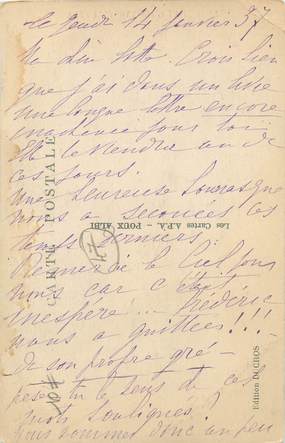 Le Jeudi 14 Janvier 37
Crois bien
que j'ai dans un livre
une longue lettre encore
inachevée pour toi
elle te viendra un de
ces jours.
Une heureuse bourrasque
nous a secouées ces
temps derniers.
Remercie le Ciel pour
nous car c'était
inespéré... Frédéric
nous a quittées!!!
de son propre gré -
le sens de ces
mots soulignés!
Nous sommes donc un peu
CARTE POSTALE
Les Cartes A.P.A. - POUX ALBI
47
Edition DUCROS